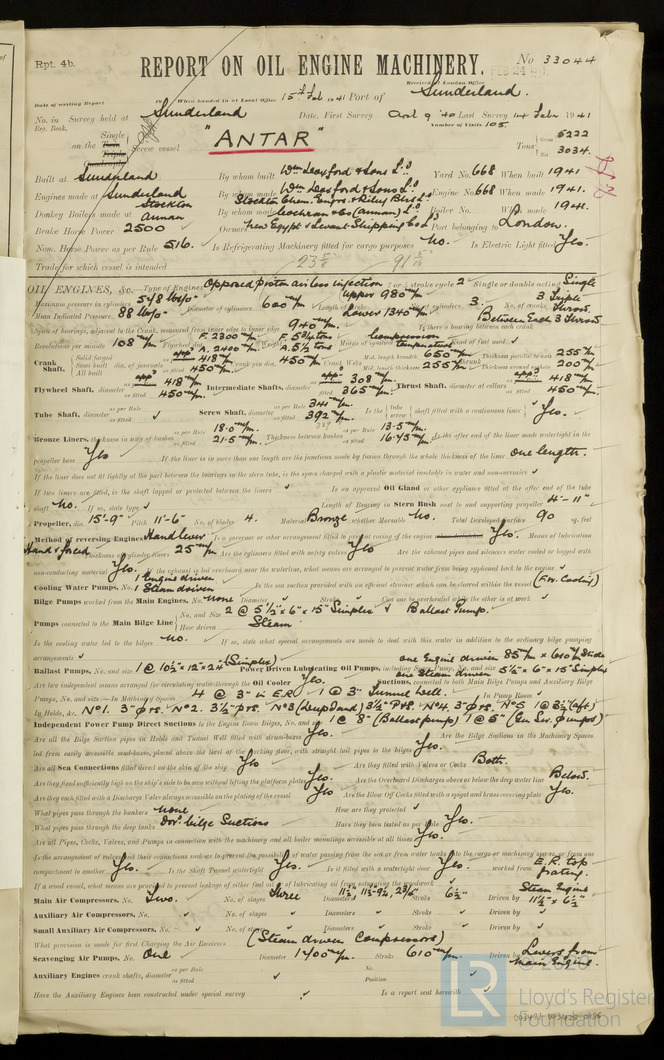 Rpt. 4b.
REPORT ON OIL ENGINE MACHINERY.
No 33044
Received at London Office
Date of writing Report When handed in at Local Office 15th Feb 1941 Port of Sunderland.
No. in Reg. Book. Survey held at Sunderland Date, First Survey Last Survey 14 Feb 1941
Number of Visits 105.
on the Single Screw vessel "ANTAR" Tons Gross 5222
Net 3034.
Built at Sunderland By whom built Wm Doxford & Sons Ld. Yard No. 668 When built 1941
Engines made at Sunderland By whom made Wm Doxford & Sons Ld. Engine No. 668 When made 1941.
Donkey Boilers made at Annan By whom made Cochran & Co (Annan) Ld. Boiler No. When made 1941.
Brake Horse Power 2500 Owners New Egypt & Levant Shipping Co Ld Port belonging to London.
Nom. Horse Power as per Rule 516. Is Refrigerating Machinery fitted for cargo purposes No. Is Electric Light fitted Yes.
Trade for which vessel is intended
OIL ENGINES, &c. Type of Engines Opposed piston airless injection 2 or 4 stroke cycle 2 Single or double acting Single
Maximum pressure in cylinders 548 lbs/□" Diameter of cylinders 600 m/m Length of stroke Upper 980 m/m Lower 1340 m/m No. of cylinders 3. No. of cranks 3 Triple
Mean Indicated Pressure 88 lbs/□"
Span of bearings, adjacent to the Crank, measured from inner edge to inner edge 940 m/m. Is there a bearing between each crank Between Each 3 Throws
Revolutions per minute 108 Flywheel dia. F. 2300 m/m A. 2400 m/m Means of ignition Compression temperature Kind of fuel used
Crank Shaft, dia. of journals as per Rule app 418 m/m as fitted 450 m/m Crank pin dia. 450 m/m Crank Webs Mid. length breadth 650 m/m Thickness parallel to axis 255 m/m
Mid. length thickness 255 m/m Thickness around eye-hole 200 m/m
Flywheel Shaft, diameter as per Rule app 418 m/m as fitted 450 m/m Intermediate Shafts, diameter as per Rule app 308 m/m as fitted 365 m/m Thrust Shaft, diameter at collars as per Rule app 418 m/m as fitted 450 m/m
Tube Shaft, diameter as per Rule as fitted Screw Shaft, diameter as per Rule 341 m/m as fitted 392 m/m Is the tube screw shaft fitted with a continuous liner Yes.
Bronze Liners, thickness in way of bushes as per Rule 18.0 m/m as fitted 21.5 m/m Thickness between bushes as per Rule 13.5 m/m as fitted 16.45 m/m Is the after end of the liner made watertight in the
propeller boss Yes If the liner is in more than one length are the junctions made by fusion through the whole thickness of the liner One length.
If the liner does not fit tightly at the part between the bearings in the stern tube, is the space charged with a plastic material insoluble in water and non-corrosive
If two liners are fitted, is the shaft lapped or protected between the liners Is an approved Oil Gland or other appliance fitted at the after end of the tube
shaft No. If so, state type Length of Bearing in Stern Bush next to and supporting propeller 4'-11"
Propeller, dia. 15'-9" Pitch 11'-6" No. of blades 4. Material Bronze whether Moveable No. Total Developed Surface 90 sq. feet
Method of reversing Engines Hand lever Is a governor or other arrangement fitted to prevent racing of the engine Yes. Means of lubrication
Hand & forced Thickness of cylinder liners 25 m/m Are the cylinders fitted with safety valves Yes Are the exhaust pipes and silencers water cooled or lagged with
non-conducting material Yes. If the exhaust is led overboard near the waterline, what means are arranged to prevent water from being syphoned back to the engine
Cooling Water Pumps, No. 1 Engine driven 1 Steam driven Is the sea suction provided with an efficient strainer which can be cleared within the vessel (F.W. Cooling)
Bilge Pumps worked from the Main Engines, No. None Diameter Stroke Can one be overhauled while the other is at work
Pumps connected to the Main Bilge Line No. and Size 2 @ 5½" x 6" x 15" Simplex Ballast Pump.
How driven Steam
Is the cooling water led to the bilges No. If so, state what special arrangements are made to deal with this water in addition to the ordinary bilge pumping
arrangements
Ballast Pumps, No. and size 1 @ 10½ x 12" x 24 (Simplex) Power Driven Lubricating Oil Pumps, including Spare Pump, No. and size One Engine driven 85 m/m x 610 m/m Stroke One Steam driven 5½" x 6" x 15" Simplex
Are two independent means arranged for circulating water through the Oil Cooler Yes Suctions, connected to both Main Bilge Pumps and Auxiliary Bilge
Pumps, No. and size:—In Machinery Spaces 4 @ 3" in E.R. 1 @ 3" Tunnel Well. In Pump Room
In Holds, &c. No 1. 3" P & S. No 2. 3½" P & S. No 3 (deep tank) 3½" P & S. No 4. 3" P & S. No 5 1 @ 3½ (Aft)
Independent Power Pump Direct Suctions to the Engine Room Bilges, No. and size 1 @ 8" (Ballast pump) 1 @ 5" (Gen. Ser. pump)
Are all the Bilge Suction pipes in Holds and Tunnel Well fitted with strum-boxes Yes Are the Bilge Suctions in the Machinery Spaces
led from easily accessible mud-boxes, placed above the level of the working floor, with straight tail pipes to the bilges Yes.
Are all Sea Connections fitted direct on the skin of the ship Yes Are they fitted with Valves or Cocks Both.
Are they fixed sufficiently high on the ship's side to be seen without lifting the platform plates Yes. Are the Overboard Discharges above or below the deep water line Below.
Are they each fitted with a Discharge Valve always accessible on the plating of the vessel Yes Are the Blow Off Cocks fitted with a spigot and brass covering plate Yes.
What pipes pass through the bunkers None How are they protected
What pipes pass through the deep tanks For'd bilge Suctions Have they been tested as per Rule Yes.
Are all Pipes, Cocks, Valves, and Pumps in connection with the machinery and all boiler mountings accessible at all times Yes.
Is the arrangement of valves and their connections such as to prevent the possibility of water passing from the sea or from water tanks to the cargo or machinery spaces, or from one
compartment to another Yes. Is the Shaft Tunnel watertight Yes. Is it fitted with a watertight door Yes. worked from E.R. top grating.
If a wood vessel, what means are provided to prevent leakage of either fuel oil or lubricating oil from saturating the woodwork
Main Air Compressors, No. Two. No. of stages Three Diameters Stroke 6½" Driven by Steam Engine 11½" x 6½"
Auxiliary Air Compressors, No. No. of stages Diameters Stroke Driven by
Small Auxiliary Air Compressors, No. No. of stages Diameters Stroke Driven by
What provision is made for first Charging the Air Receivers (Steam driven Compressors)
Scavenging Air Pumps, No. One Diameter 1400 m/m. Stroke 610 m/m. Driven by Levers from Main Engine.
Auxiliary Engines crank shafts, diameter as per Rule as fitted No. Position
Have the Auxiliary Engines been constructed under special survey Is a report sent herewith
LR
© 2020
Lloyd's Register
Foundation